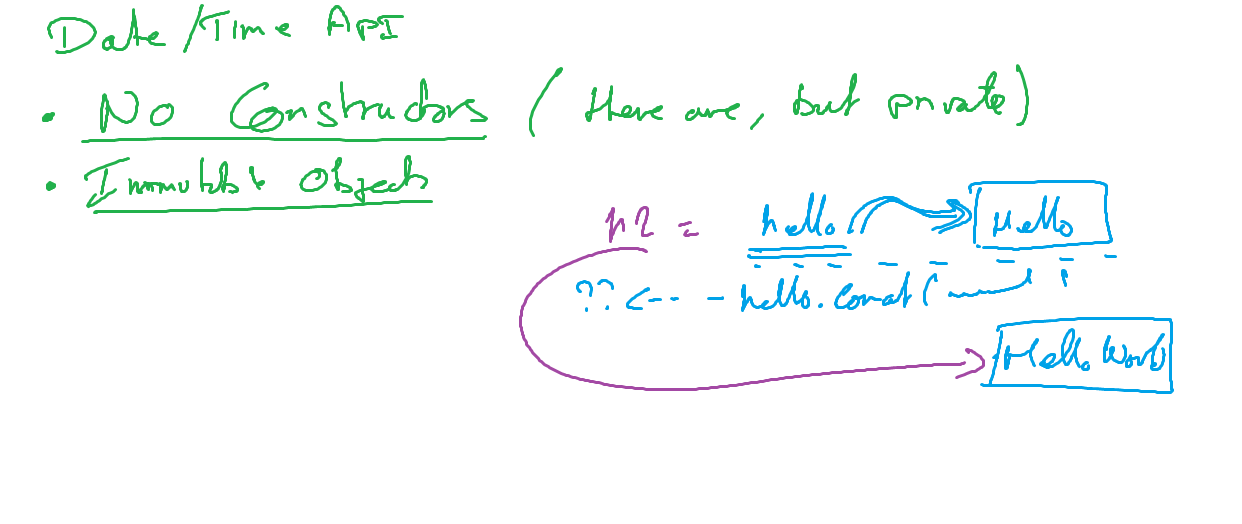 Date/Time API
• No Constructors (there are, but private)
• Immutable Objects
h2 = hello Hello
?? <--- hello.concat(
Hello World